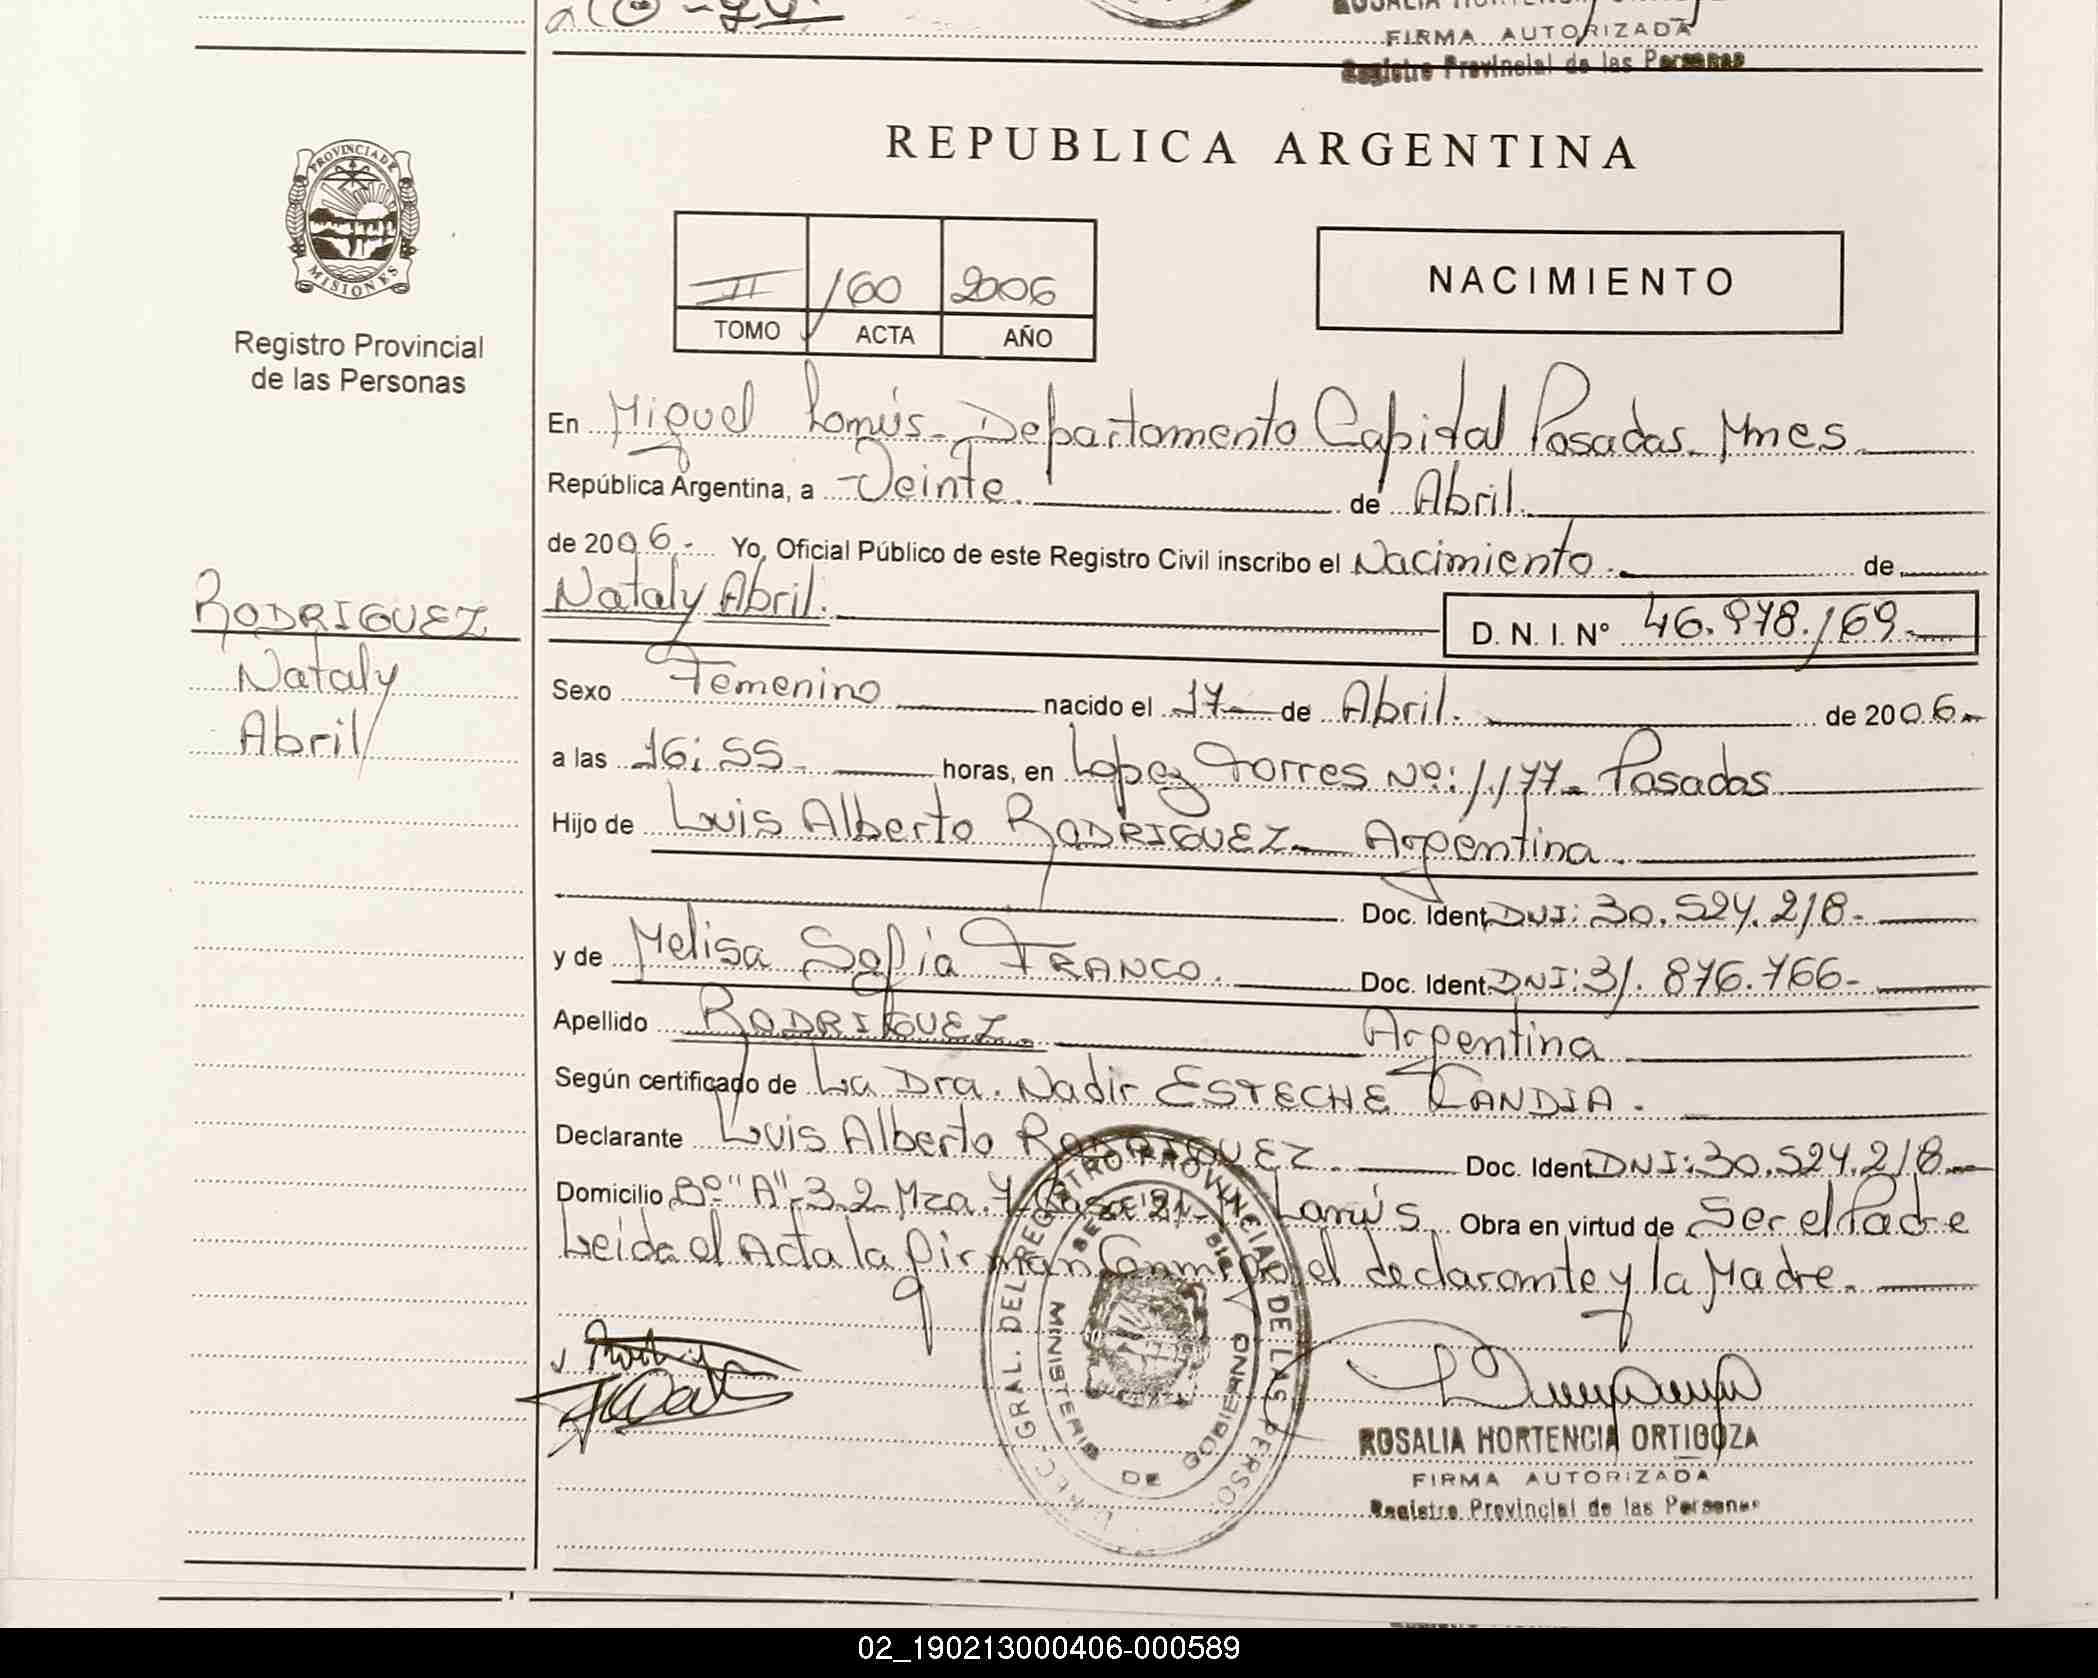 FIRMA AUTORIZADA
Registro Provincial de las Personas
PROVINCIA DE
MISIONES
Registro Provincial
de las Personas
REPUBLICA ARGENTINA
II 160 2006
TOMO ACTA AÑO
NACIMIENTO
En Miguel Lanús - Departamento Capital Posadas - Mnes
República Argentina, a Veinte. de Abril.
de 2006.- Yo, Oficial Público de este Registro Civil inscribo el Nacimiento. de
RODRIGUEZ
Nataly
Abril
Nataly Abril.
D. N. I. Nº 46.978.169.-
Sexo Femenino nacido el 17- de Abril. de 2006.-
a las 16:55- horas, en Lopez Torres Nº: 1.177- Posadas
Hijo de Luis Alberto RODRIGUEZ- Argentina.
Doc. Ident. DNI: 30.524.218-
y de Melisa Sofia FRANCO. Doc. Ident. DNI: 31.876.766-
Apellido RODRIGUEZ. Argentina
Según certificado de La Dra. Nadir ESTECHE CANDIA.
Declarante Luis Alberto RODRIGUEZ. Doc. Ident. DNI: 30.524.218-
Domicilio Bº "A"-3.2-Mza. 7 Casa 21- Lanús Obra en virtud de Ser el Padre
Leida el Acta la firman Conmigo el declarante y la Madre.
GRAL. DEL REGISTRO PROVINCIAL DE LAS PERSO
MINISTERIO DE GOBIERNO
ROSALIA HORTENCIA ORTIGOZA
FIRMA AUTORIZADA
Registro Provincial de las Personas
02_190213000406-000589